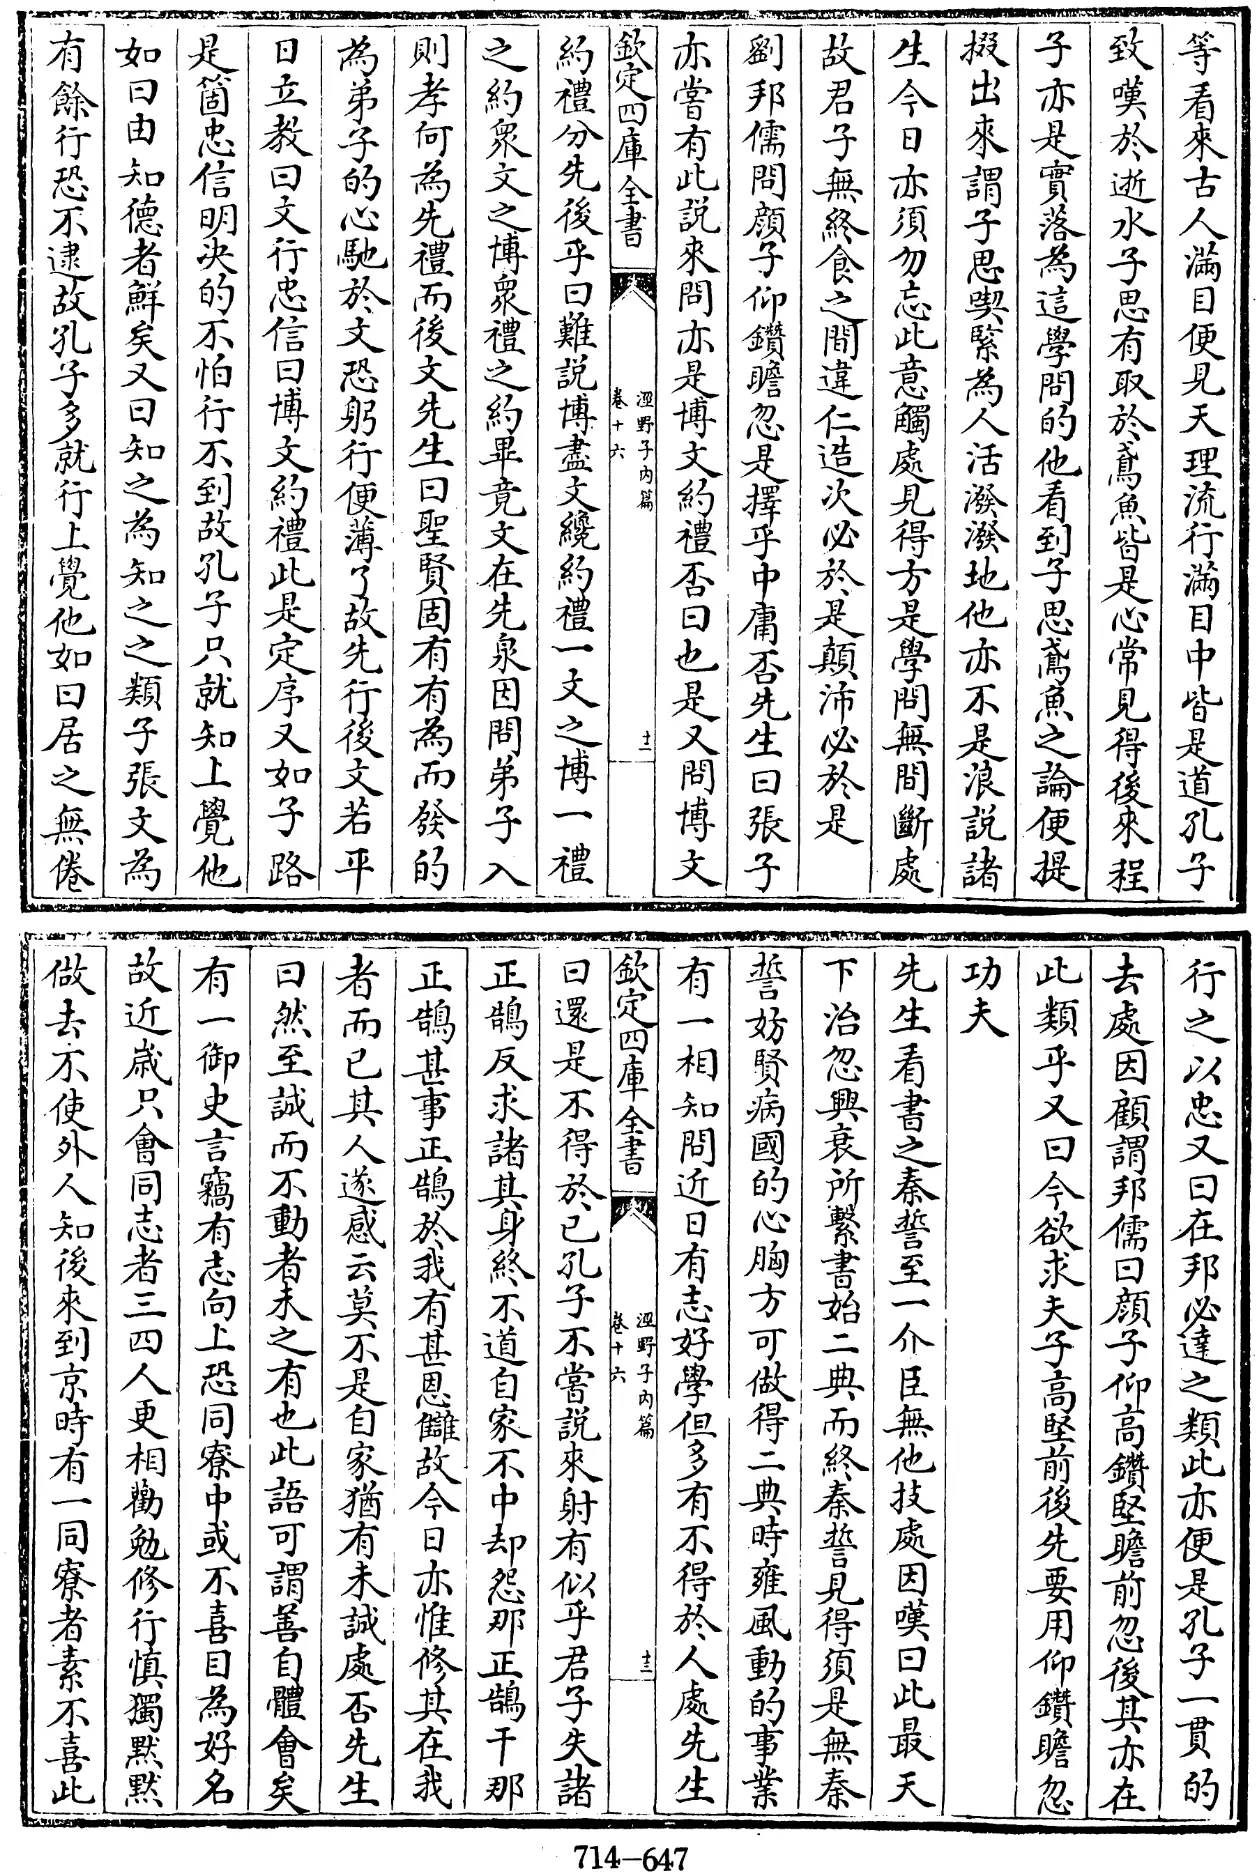 等看來古人滿目便見天理流行滿目中皆是道孔子
致嘆於逝水子思有取於鳶魚皆是心常見得後來程
子亦是實落為這學問的他看到子思鳶魚之論便提
掇出來謂子思喫緊為人活潑潑地他亦不是浪說諸
生今日亦須勿忘此意觸處見得方是學問無間斷處
故君子無終食之間違仁造次必於是顛沛必於是
劉邦儒問顔子仰鑽瞻忽是擇乎中庸否先生曰張子
亦嘗有此説來問亦是博文約禮否曰也是又問博文
欽定四庫全書
涇野子內篇
卷十六
十二
約禮分先後乎曰難説博盡文纔約禮一文之博一禮
之約衆文之博衆禮之約畢竟文在先泉因問弟子入
則孝何為先禮而後文先生曰聖賢固有有為而發的
為弟子的心馳於文恐躬行便薄了故先行後文若平
日立教曰文行忠信曰博文約禮此是定序又如子路
是箇忠信明決的不怕行不到故孔子只就知上覺他
如曰由知德者鮮矣又曰知之為知之之類子張文為
有餘行恐不逮故孔子多就行上覺他如曰居之無倦
行之以忠又曰在邦必達之類此亦便是孔子一貫的
去處因顧謂邦儒曰顔子仰高鑽堅瞻前忽後其亦在
此類乎又曰今欲求夫子高堅前後先要用仰鑽瞻忽
功夫
先生看書之秦誓至一介臣無他技處因嘆曰此最天
下治忽興衰所繫書始二典而終秦誓見得須是無秦
誓妨賢病國的心胸方可做得二典時雍風動的事業
有一相知問近日有志好學但多有不得於人處先生
欽定四庫全書
涇野子內篇
卷十六
十三
曰還是不得於己孔子不嘗説來射有似乎君子失諸
正鵠反求諸其身終不道自家不中却怨那正鵠干那
正鵠甚事正鵠於我有甚恩讎故今日亦惟修其在我
者而已其人遂感云莫不是自家猶有未誠處否先生
曰然至誠而不動者未之有也此語可謂善自體會矣
有一御史言竊有志向上恐同寮中或不喜目為好名
故近歳只會同志者三四人更相勸勉修行慎獨默默
做去不使外人知後來到京時有一同寮者素不喜此
714-647